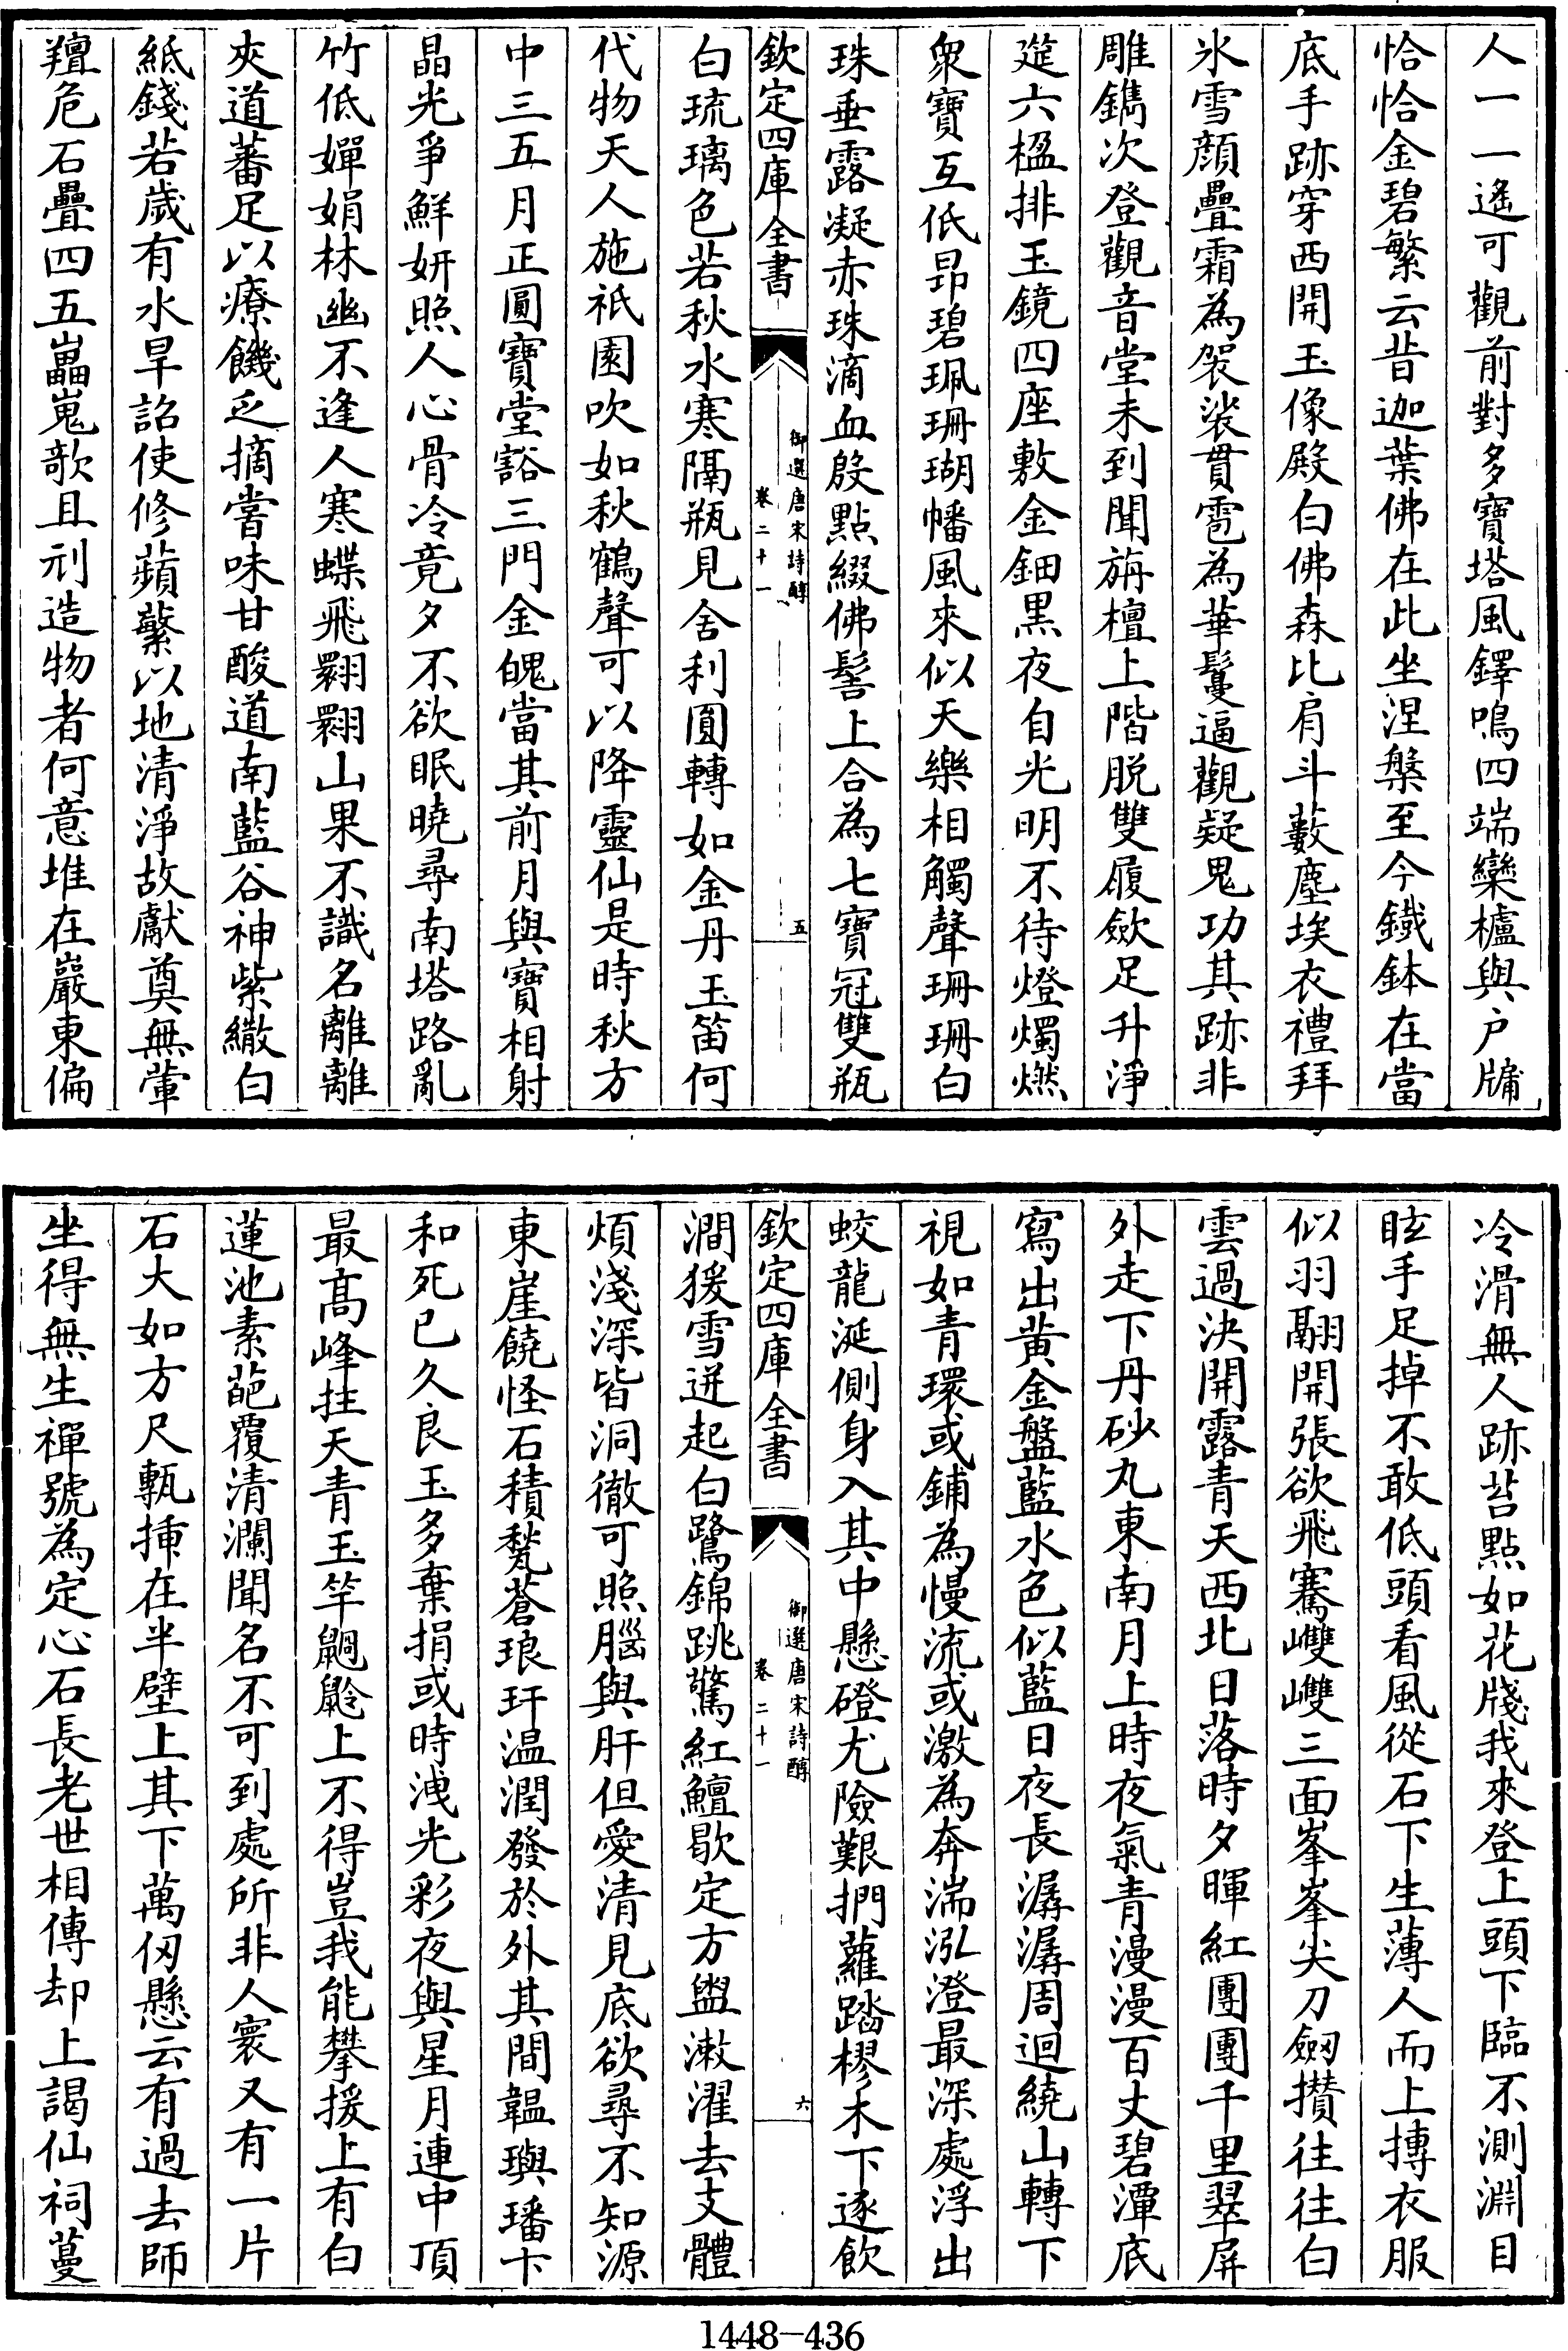 人一一遙可觀前對多寶塔風鐸鳴四端欒櫨與户牖
恰恰金碧繁云昔迦葉佛在此坐涅槃至今鐵鉢在當
底手跡穿西開玉像殿白佛森比肩斗藪塵埃衣禮拜
氷雪顔疊霜為袈裟貫雹為華鬘逼觀疑鬼功其跡非
雕鐫次登觀音堂未到聞旃檀上階脱雙履歛足升淨
筵六楹排玉鏡四座敷金鈿黒夜自光明不待燈燭燃
衆寶互低昻碧珮珊瑚幡風來似天樂相觸聲珊珊白
珠垂露凝赤珠滴血殷點綴佛髻上合為七寶冠雙瓶
欽定四庫全書
御選唐宋詩醇
卷二十一
五
白琉璃色若秋水寒隔瓶見舍利圓轉如金丹玉笛何
代物天人施祇園吹如秋鶴聲可以降靈仙是時秋方
中三五月正圓寶堂豁三門金魄當其前月與寶相射
晶光爭鮮妍照人心骨冷竟夕不欲眠曉尋南塔路亂
竹低嬋娟林幽不逢人寒蝶飛翾翾山果不識名離離
夾道蕃足以療饑乏摘嘗味甘酸道南藍谷神紫繖白
紙錢若歲有水旱詔使修蘋蘩以地清淨故獻奠無葷
羶危石疊四五嵓嵬欹且刓造物者何意堆在巖東偏
冷滑無人跡苔點如花牋我來登上頭下臨不測淵目
眩手足掉不敢低頭看風從石下生薄人而上摶衣服
似羽翮開張欲飛騫㠉㠉三面峯峯尖刀劒攅往往白
雲過決開露青天西北日落時夕暉紅團團千里翠屏
外走下丹砂丸東南月上時夜氣青漫漫百丈碧潭底
寫出黄金盤藍水色似藍日夜長潺潺周迴繞山轉下
視如青環或鋪為慢流或激為奔湍泓澄最深處浮出
蛟龍涎側身入其中懸磴尤險艱捫蘿踏樛木下逐飲
欽定四庫全書
御選唐宋詩醇
卷二十一
六
澗猨雪迸起白鷺錦跳驚紅鱣歇定方盥漱濯去支體
煩淺深皆洞徹可照腦與肝但愛清見底欲尋不知源
東崖饒怪石積甃蒼琅玕温潤發於外其間韞璵璠卞
和死已久良玉多棄捐或時洩光彩夜與星月連中頂
最高峰拄天青玉竿䶈䶉上不得豈我能攀援上有白
蓮池素葩覆清瀾聞名不可到處所非人寰又有一片
石大如方尺甎揷在半壁上其下萬仭懸云有過去師
坐得無生禪號為定心石長老世相傳却上謁仙祠蔓
1448-436